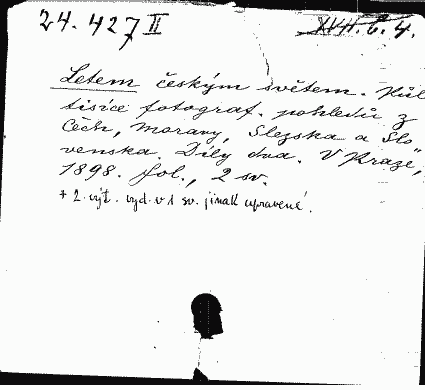 24.427 II
XVII. G. 4.
Letem českým světem. Půl
tisíce fotograf. pohledů z
Čech, Moravy, Slezska a Slo-
venska. Díly dva. V Praze,
1898. fol., 2 sv.
+ 2. výt. vyd. v 1 sv. jinak upravené.